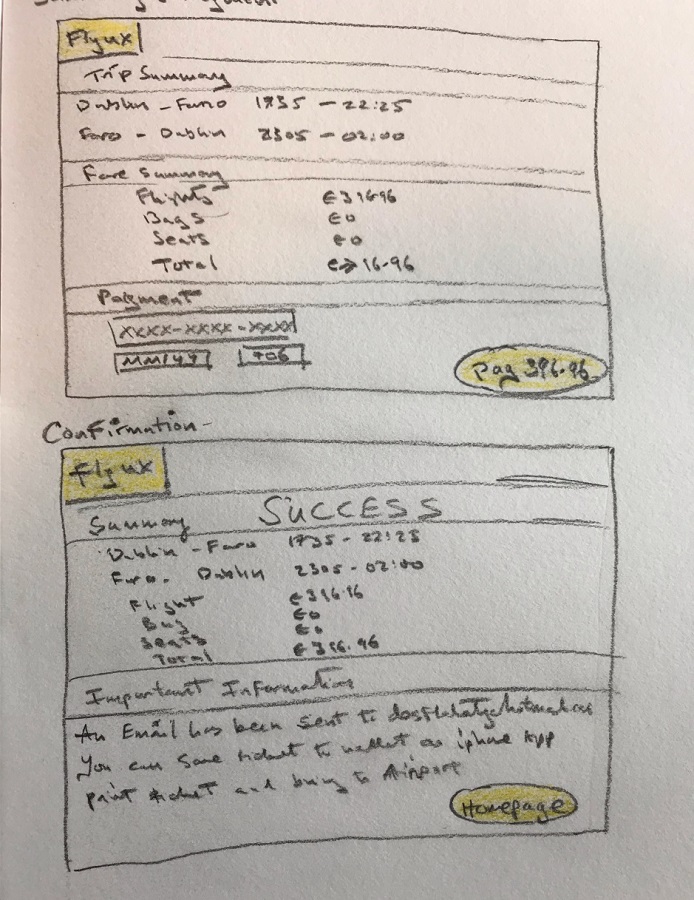 Summary & Payment
Flyux
Trip Summary
Dublin - Faro 1935 - 22:25
Faro - Dublin 2305 - 02:00
Fare Summary
Flights €316.96
Bags €0
Seats €0
Total 16.96
Payment
XXXX-XXXX-XXXX
MM/YY
Pay
Confirmation -
Flyux
Summary SUCCESS
Dublin - Faro 1935 - 22:25
Faro - Dublin 2305 - 02:00
Flight
Bag €0
Seats €0
Total €316.96
Important Information
An Email has been sent to
You can save ticket to wallet on iphone App
print ticket and bring to Airport
Homepage